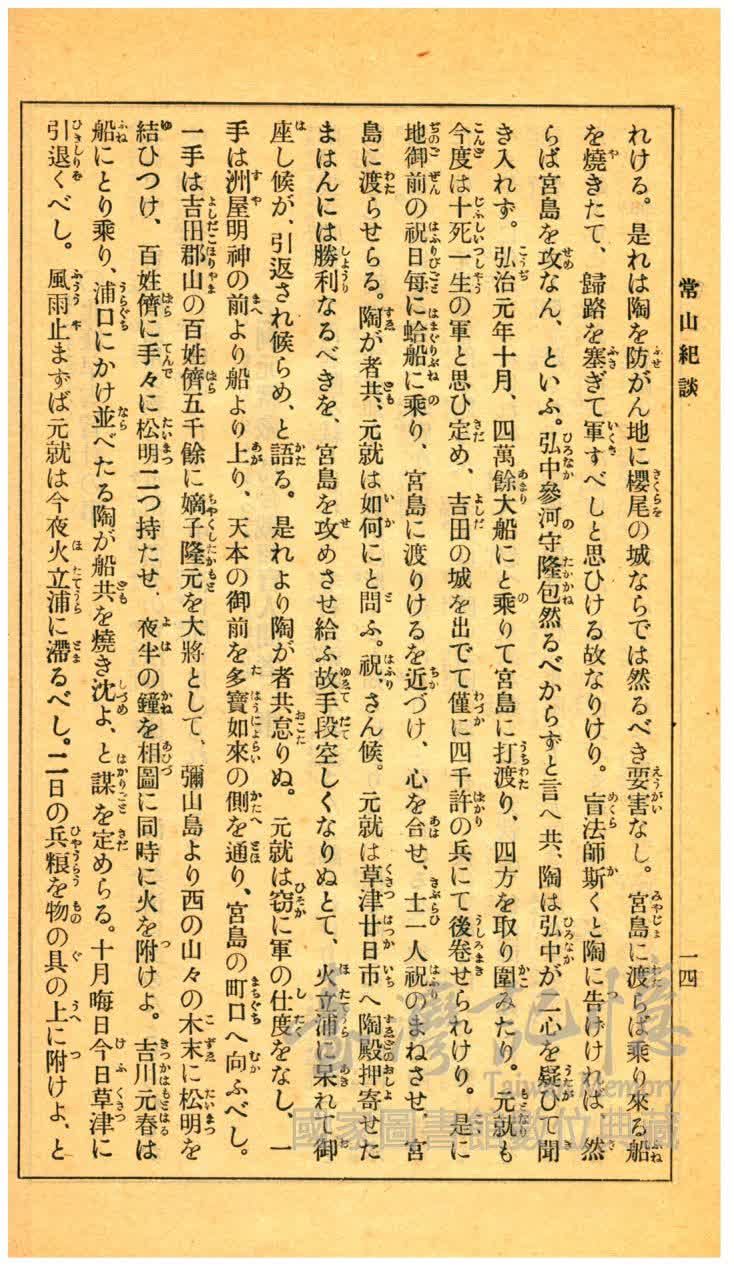 常山紀談
一四
れける。是れは陶を防がん地に櫻尾の城ならでは然るべき要害なし。宮島に渡らば乘り來る船
を燒きたて、歸路を塞ぎて軍すべしと思ひける故なりけり。盲法師斯くと陶に告げければ、然
らば宮島を攻なん、といふ。弘中參河守隆包然るべからずと言へ共、陶は弘中が二心を疑ひて聞
き入れず。弘治元年十月、四萬餘大船にと乘りて宮島に打渡り、四方を取り圍みたり。元就も
今度は十死一生の軍と思ひ定め、吉田の城を出でて僅に四千許の兵にて後卷せられけり。是に
地御前の祝日每に蛤船に乘り、宮島に渡りけるを近づけ、心を合せ、士一人祝のまねさせ、宮
島に渡らせらる。陶が者共、元就は如何にと問ふ。祝、さん候。元就は草津廿日市へ陶殿押寄せた
まはんには勝利なるべきを、宮島を攻めさせ給ふ故手段空しくなりぬとて、火立浦に呆れて御
座し候が、引返され候らめ、と語る。是れより陶が者共怠りぬ。元就は窃に軍の仕度をなし、一
手は洲屋明神の前より船より上り、天本の御前を多寶如來の側を通り、宮島の町口へ向ふべし。
一手は吉田郡山の百姓儕五千餘に嫡子隆元を大將として、彌山島より西の山々の木末に松明を
結ひつけ、百姓儕に手々に松明二つ持たせ、夜半の鐘を相圖に同時に火を附けよ。吉川元春は
船にとり乘り、浦口にかけ並べたる陶が船共を燒き沈よ、と謀を定めらる。十月晦日今日草津に
引退くべし。風雨止まずば元就は今夜火立浦に滯るべし。二日の兵粮を物の具の上に附けよ、と
臺灣記憶
Taiwan Memory
國家圖書館數位典藏